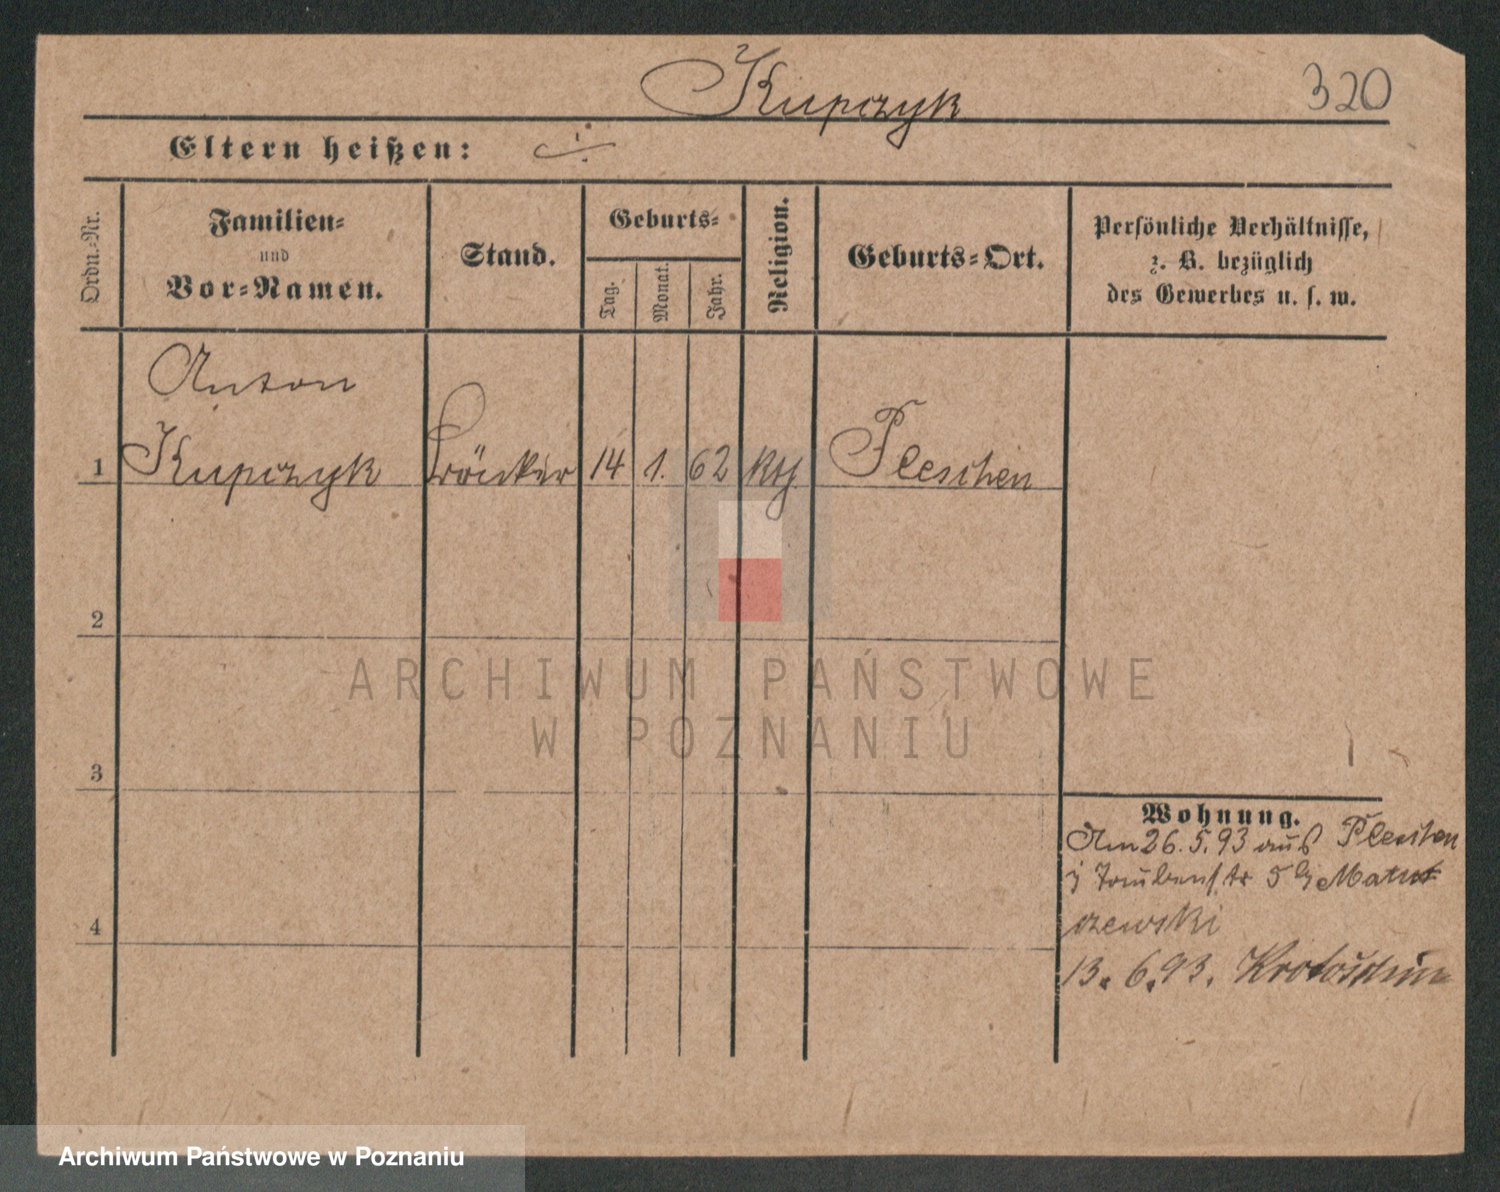 Kupczyk 320
Eltern heißen:
Ordn.-Nr.
Familien-
und
Vor-Namen.
Stand.
Geburts-
Tag.
Monat.
Jahr.
Religion.
Geburts-Ort.
Persönliche Verhältnisse,
z. B. bezüglich
des Gewerbes u. s. w.
Anton
1 Kupczyk 14 1. 62 kth Pleschen
2
ARCHIWUM PAŃSTWOWE
W POZNANIU
3
Wohnung.
Am 26.5.93 aus Pleschen
Taubenstr 5
4
czewski
13.6.93. Krotoschin
Archiwum Państwowe w Poznaniu